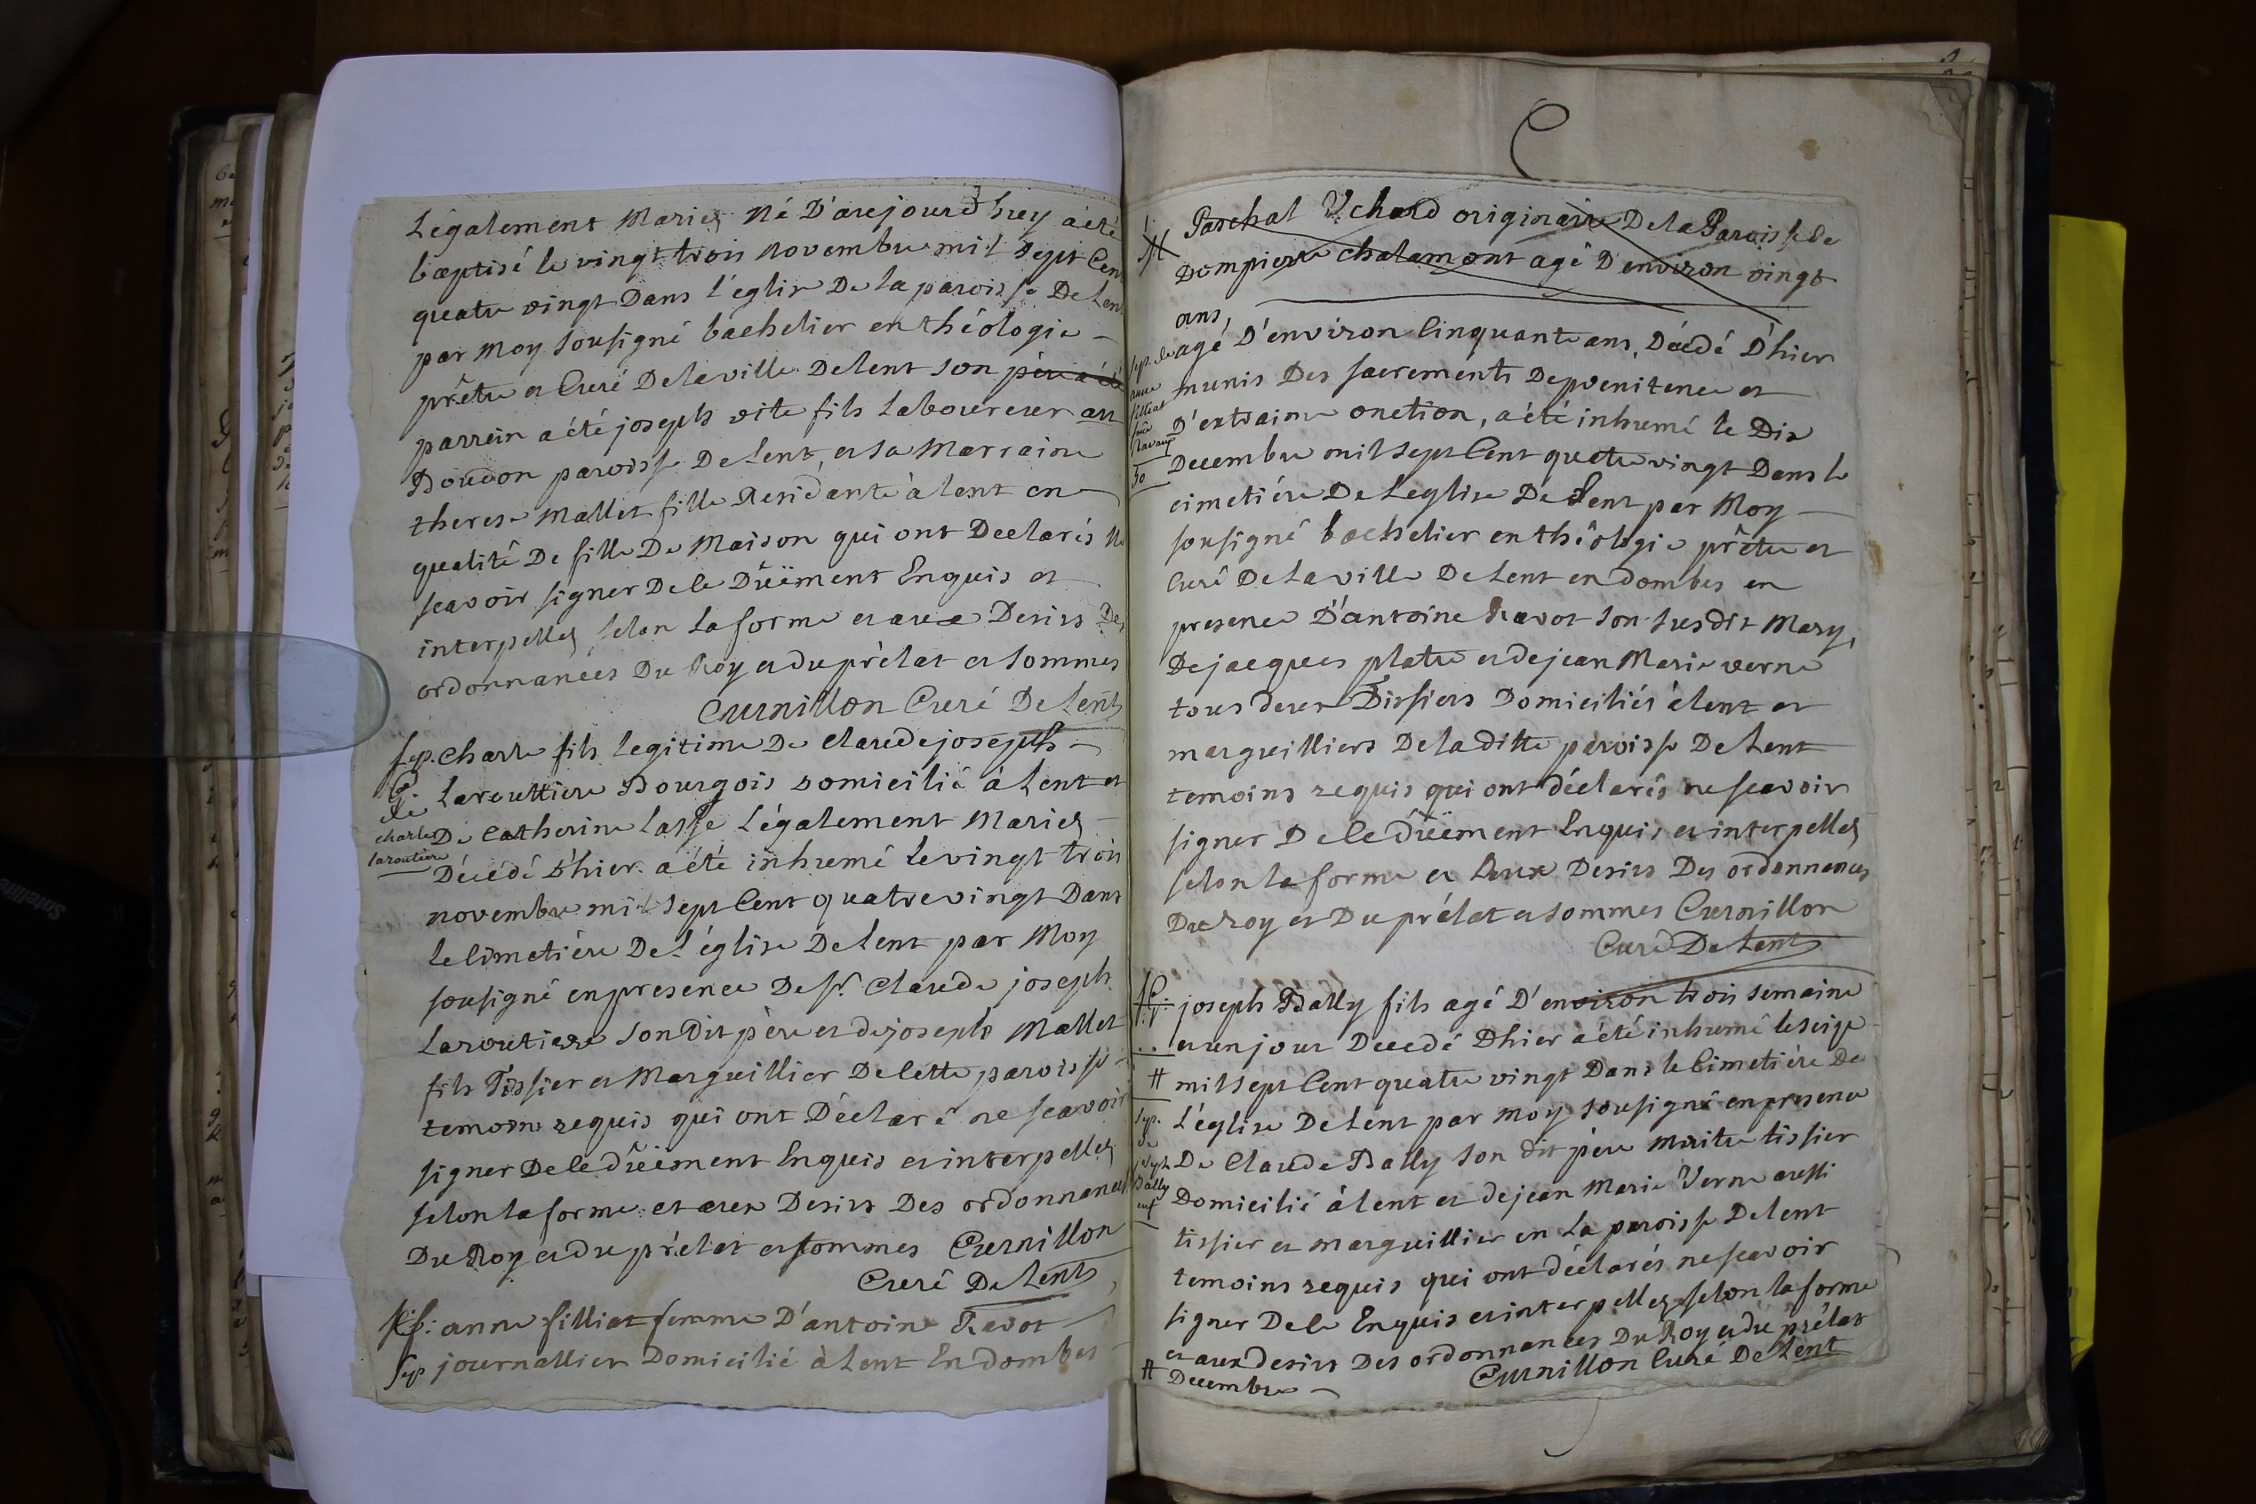 Légalement Mariés Né D'aujourd'huy a été
baptisé le vingt trois novembre mil sept Cent
quatre vingt Dans l'églize De la paroisse De Lent
par Moy Sousigné bachelier en théologie
prêtre et Curé De la ville De lent son père a été
parrein a été joseph vite fils laboureur au
Boudon paroisse De lent, et sa Marraine
therese Mallet fille Residante à lent en
qualité De fille De Maison qui ont Declarés Ne
scavoir signer De le Dûëment Enquis et
interpellés selon la forme et aux Desirs Des
ordonnances Du Roy et du prélat et sommes
Curnillon Curé De Lent
Sep. Charle fils legitime De claude joseph
Laroutiere Bourgois domicilié à lent et
De Catherine lasse Légalement Mariés
de
charle
laroutiere
Décédé d'hier a été inhumé le vingt trois
novembre mil sept Cent quatre vingt Dans
le Cimetiére De L'églize De lent par Moy
sousigné en presence De sr. Claude joseph
Laroutiere Son Dit père et de joseph Mallet
fils Tissier et Marguillier De Cette paroisse
temoins requis qui ont Déclaré ne scavoir
signer De le dûëment Enquis et interpellés
selon la forme et aux Desirs Des ordonnances
Du Roy et du prélat et sommes Curnillon
Curé De Lent
anne filliat femme D'antoine Ravot
Sep journallier Domicilié à Lent En dombes
Paschal Uchard originaire De la Paroisse De
Dompierre chalamont agé D'environ vingt
ans,
agé D'environ Cinquante ans, Décedé D'hier
munis Des sacrements De penitence et
D'extraime onction, a été inhumé le Dix
Decembre mil sept Cent quatre vingt Dans le
cimetiére De L'eglize De Lent par Moy
sousigné bachelier en théologie prêtre et
Curé De la ville De Lent en dombes en
presence D'antoine Ravot son susdit Mary,
De jacques platre et de jean Marie verne
tous deux Tissiers Domiciliés à lent et
marguilliers De la ditte paroisse De Lent
temoins requis qui ont déclarés ne scavoir
signer De le dûëment Enquis et interpellés
selon la forme et aux Desirs Des ordonnances
Du Roy et Du prélat et sommes Curnillon
Curé De Lent
sep. de
anne
filliat
fme
Ravot
50
joseph Bally fils agé D'environ trois semaine
et un jour Decedé D'hier a été inhumé le seize
# mil sept Cent quatre vingt Dans le Cimetiére De
L'églize De Lent par Moy sousigné en presence
De Claude Bally son dit père Maitre tissier
Domicilié à lent et de jean Marie Verne aussi
tissier et marguillier en La paroisse De lent
temoins requis qui ont déclarés ne scavoir
signer De le Enquis et interpellés selon la forme
et aux desirs Des ordonnances Du Roy et du prélat
Curnillon Curé De Lent
# Decembre
Sep.
de
joseph
Bally
enf